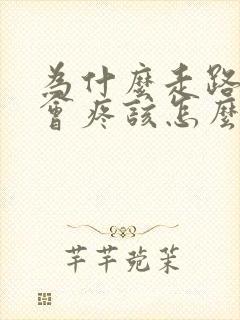 为什麼走路
會疼該怎麼
芊芊菀茉